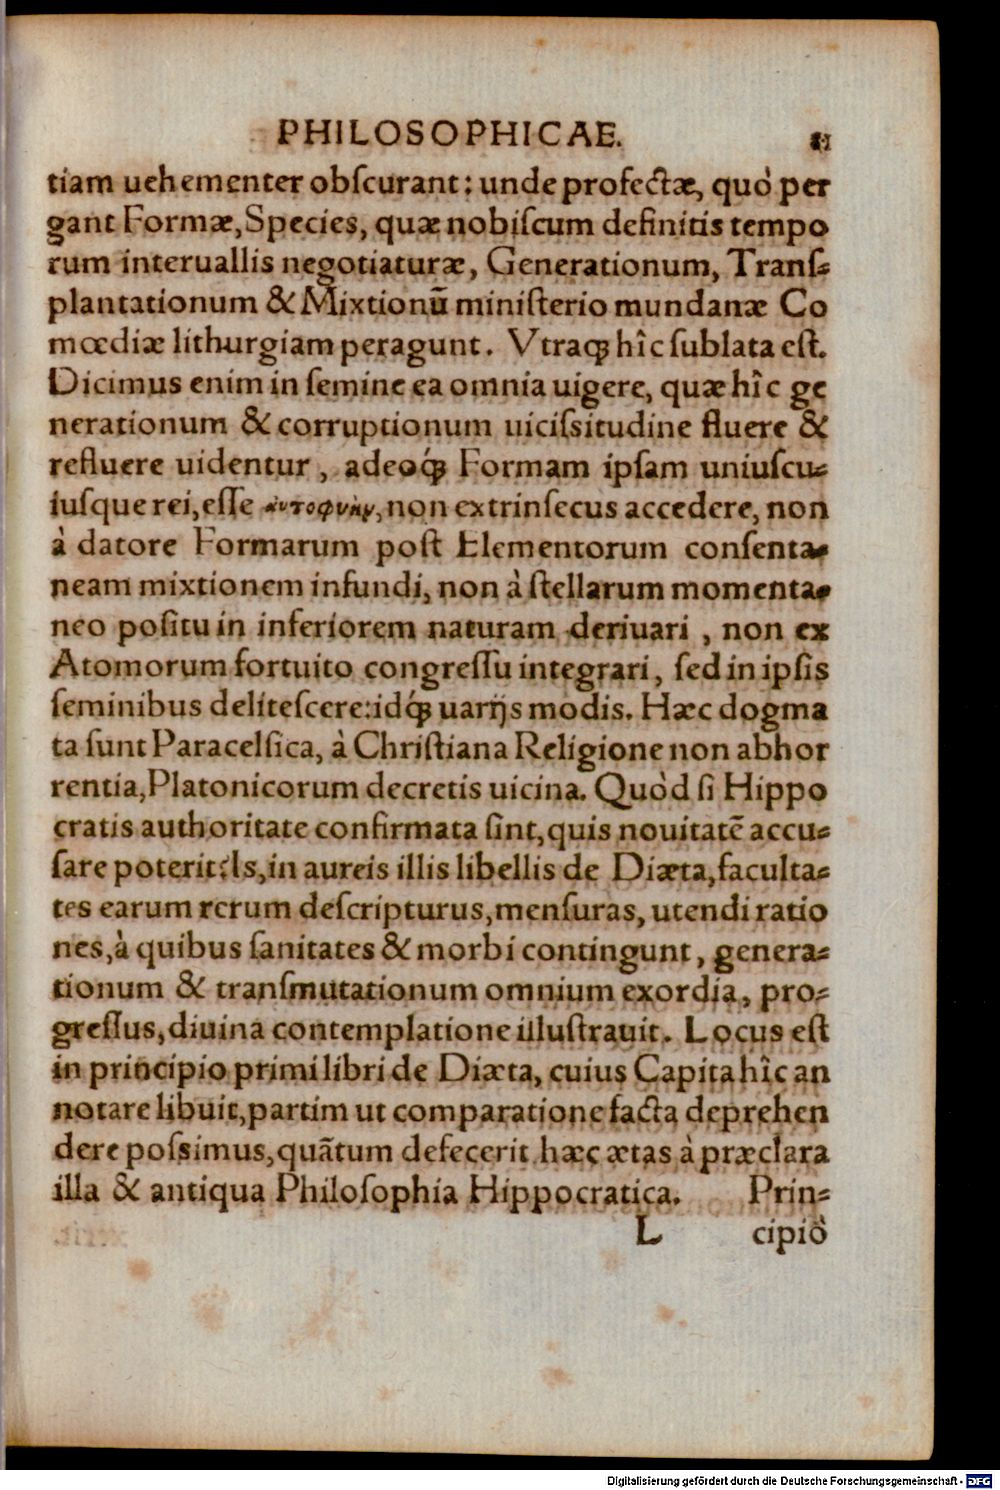 PHILOSOPHICAE. 81
tiam uehementer obſcurant: unde profectæ, quò per
gant Formæ, Species, quæ nobiſcum definitis tempo
rum interuallis negotiaturæ, Generationum, Tranſ-
plantationum & Mixtionū miniſterio mundanæ Co
mœdiæ lithurgiam peragunt. Vtraqꝫ hîc ſublata eſt.
Dicimus enim in ſemine ea omnia uigere, quæ hîc ge
nerationum & corruptionum uiciſsitudine fluere &
refluere uidentur, adeoq́ꝫ Formam ipſam uniuſcu-
iuſque rei, eſſe αὐτοφυὴν, non extrinſecus accedere, non
à datore Formarum poſt Elementorum conſenta-
neam mixtionem infundi, non à ſtellarum momenta-
neo poſitu in inferiorem naturam deriuari, non ex
Atomorum fortuito congreſſu integrari, ſed in ipſis
ſeminibus deliteſcere: idq́ꝫ uarijs modis. Hæc dogma
ta ſunt Paracelſica, à Chriſtiana Religione non abhor
rentia, Platonicorum decretis uicina. Quòd ſi Hippo
cratis authoritate confirmata ſint, quis nouitatē accu-
ſare poterit? Is, in aureis illis libellis de Diæta, faculta-
tes earum rerum deſcripturus, menſuras, utendi ratio
nes, à quibus ſanitates & morbi contingunt, genera-
tionum & tranſmutationum omnium exordia, pro-
greſſus, diuina contemplatione illuſtrauit. Locus eſt
in principio primi libri de Diæta, cuius Capita hîc an
notare libuit, partim ut comparatione facta deprehen
dere poſsimus, quātum defecerit hæc ætas à præclara
illa & antiqua Philoſophia Hippocratica. Prin-
L cipiò
Digitalisierung gefördert durch die Deutsche Forschungsgemeinschaft - DFG